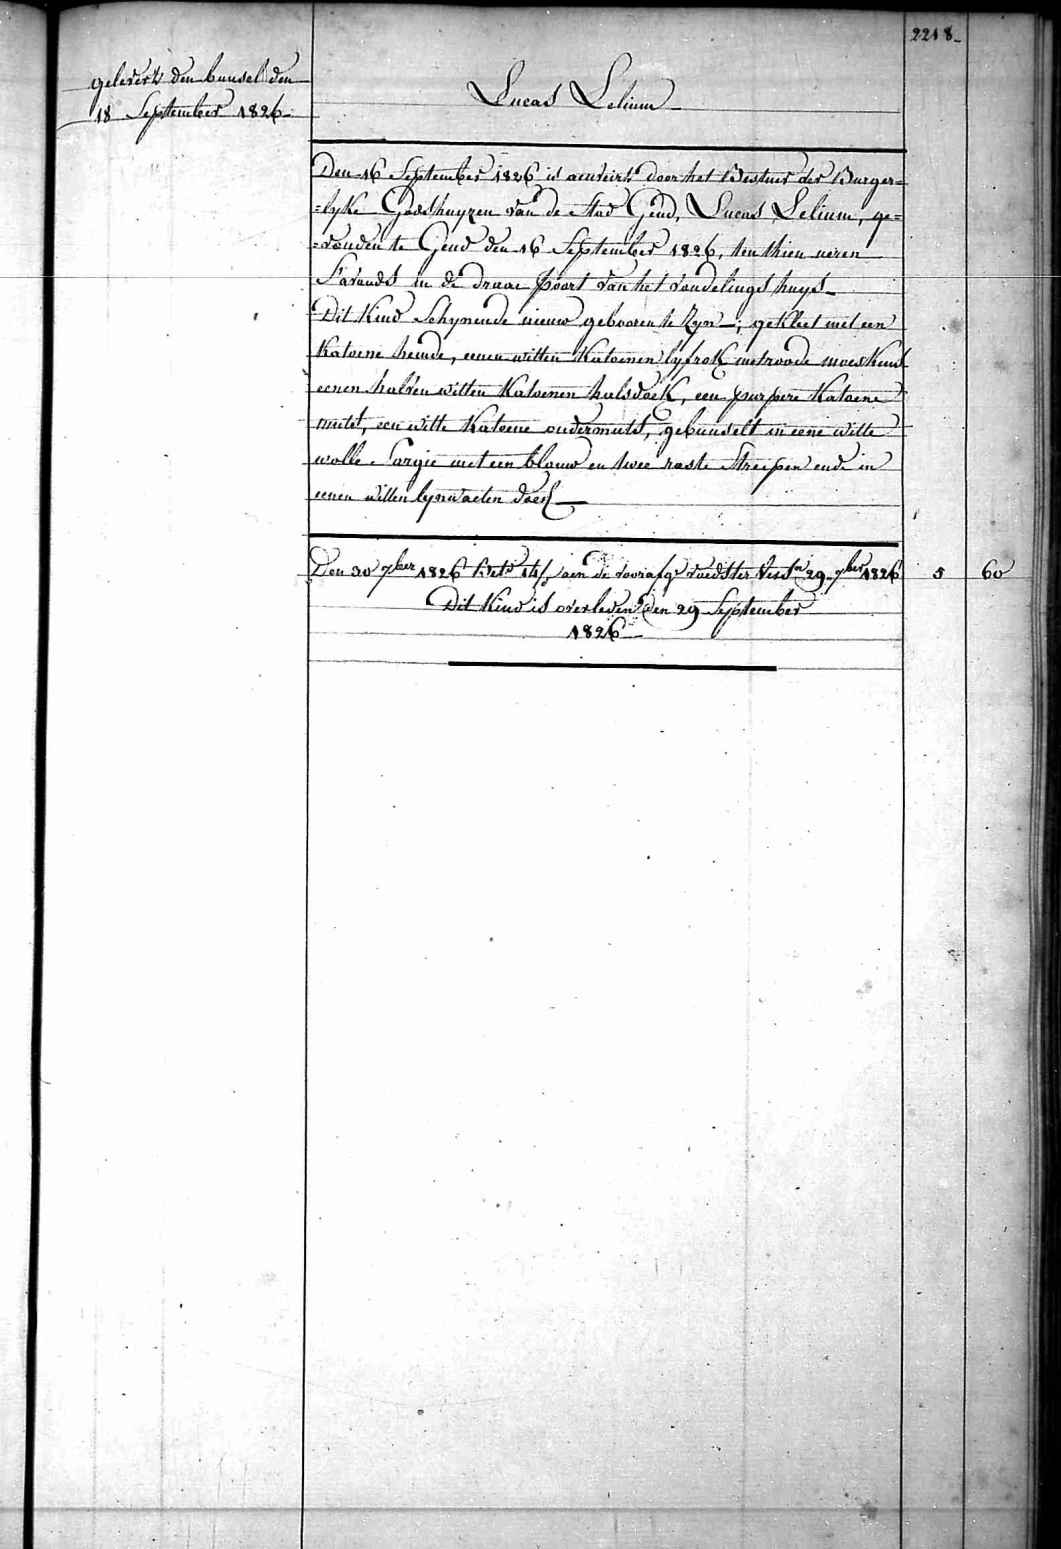 2218
gelevert den bunsel den
18 September 1826
Lucas Lelium
Den 16 September 1826 is aenveirt door het Bestuer der Burger=
=lyke Godshuyzen van de Stad Gend, Lucas Lelium, ge=
=vonden te Gend den 16 September 1826, ten thien uren
S'avonds in de draae poort van het vondelings huys
Dit Kind Schynende nieuw gebooren te Zyn; gekleet met een
Katoene hemde, eenen witten Katoenen lyfrok met roode moeskens
eenen halven witten Katoenen halsdoek, een purpere Katoene
muts, een witte Katoene ondermuts, gebunselt in eene witte
wolle Sargie met een blauw en twee roste Streepen ende in
eenen witten lynwaeten doek
Den 30 7ber 1826 aen de voorafge voedster 29 7ber 1826 5 60
Dit Kind is overleden den 29 September
1826